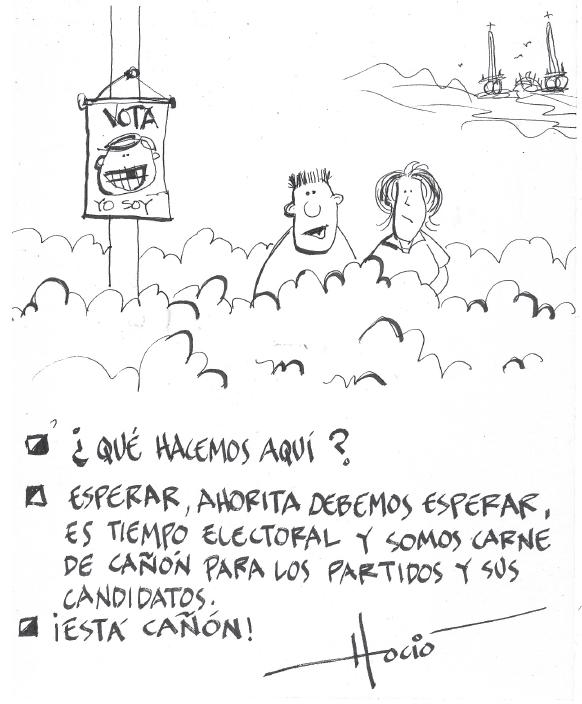 VOTA
YO SOY
¿QUÉ HACEMOS AQUÍ?
ESPERAR, AHORITA DEBEMOS ESPERAR,
ES TIEMPO ELECTORAL Y SOMOS CARNE
DE CAÑÓN PARA LOS PARTIDOS Y SUS
CANDIDATOS.
¡ESTÁ CAÑÓN!
Hocio